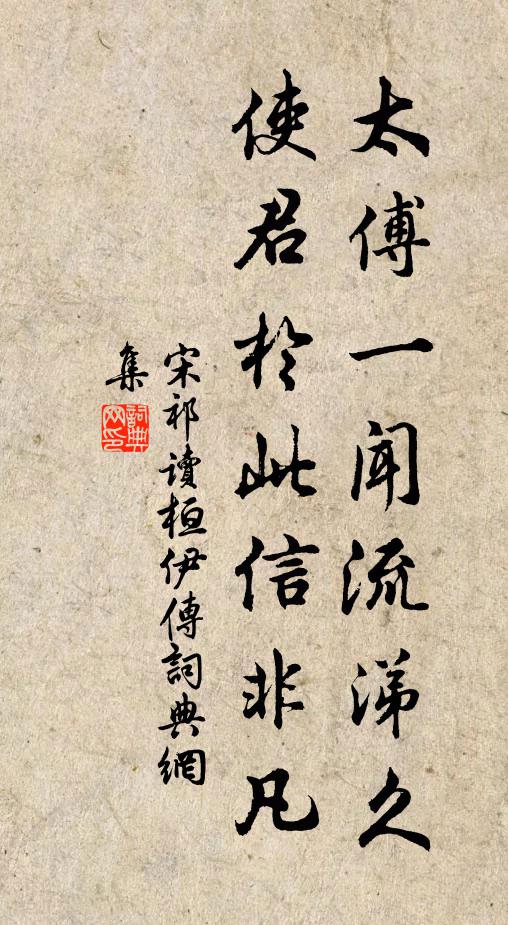 太傅一聞流涕久
使君於此信非凡
宋祁讀桓伊傳詞典網
集
詞典網印